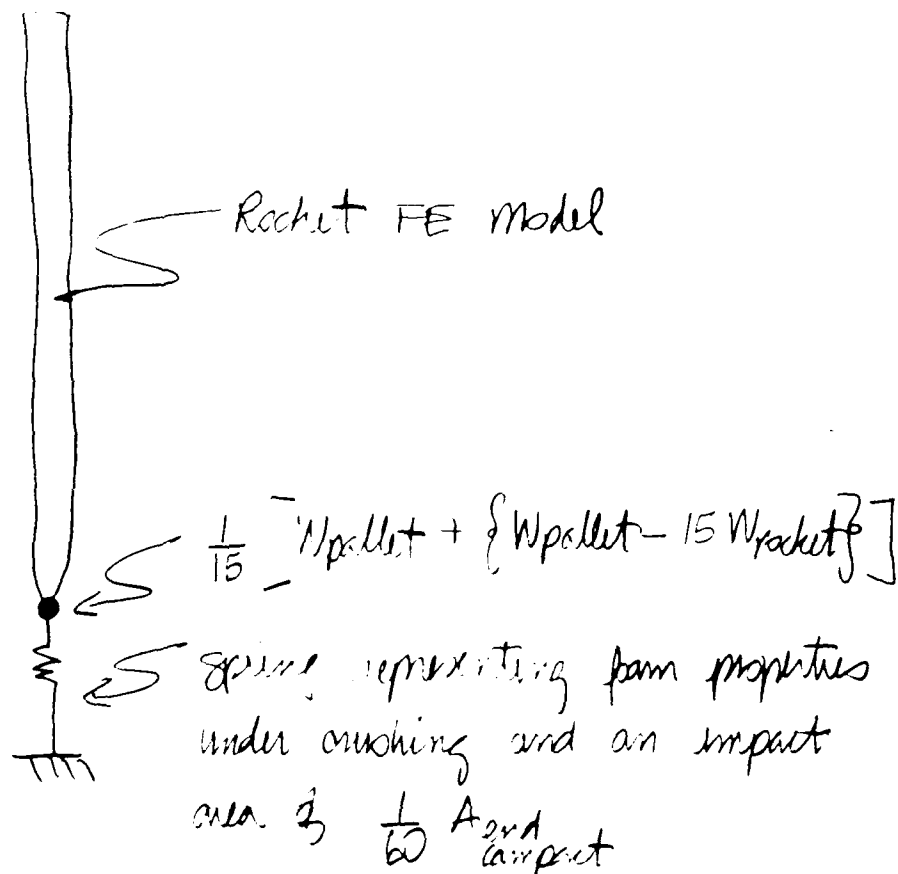 Rocket FE model
1/15 [Wpallet + {Wpallet – 15 Wrocket}]
spring representing foam properties
under crushing and an impact
area of 1/60 A end